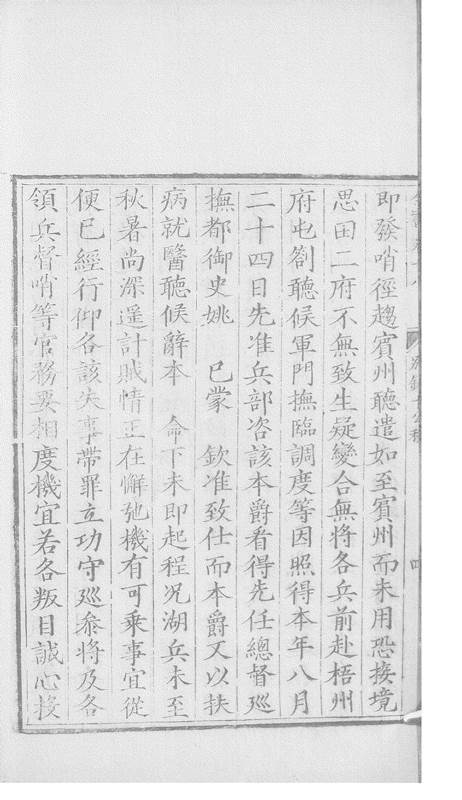 即發哨徑趨賓州聽遣如至賓州而未用恐接境
思田二府不無致生疑變合無將各兵前赴梧州
府屯劄聽候軍門撫臨調度等因照得本年八月
二十四日先准兵部咨該本爵看得先任總督巡
撫都御史姚 已蒙 欽准致仕而本爵又以扶
病就醫聽候辭本 命下未即起程况湖兵未至
秋暑尚深遥計賊情正在懈弛機有可乘事宜從
便已經行仰各該失事帶罪立功守巡叅將及各
領兵督哨等官務要相度機宜若各叛目誠心投